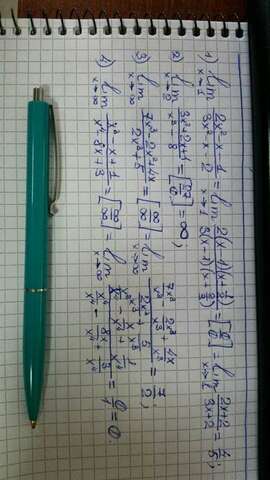 1) lim x→1 (2x²-x-1)/(3x²-x-2) = lim x→1 2(x-1)(x+1/2)/3(x-1)(x+2/3) = [0/0] = lim x→1 (2x+2)/(3x+2) = 4/5;
2) lim x→2 (3x²+2x+1)/(x³-8) = [17/0] = ∞;
3) lim x→∞ (7x³-2x²+4x)/(2x³+5) = [∞/∞] = lim x→∞ (7x³/x³ - 2x²/x³ + 4x/x³)/(2x³/x³ + 5/x³) = 7/2;
4) lim x→∞ (x²-x+1)/(x⁴-8x+3) = [∞/∞] = lim x→∞ (x²/x⁴ - x/x⁴ + 1/x⁴)/(x⁴/x⁴ - 8x/x⁴ + 3/x⁴) = 0/1 = 0.